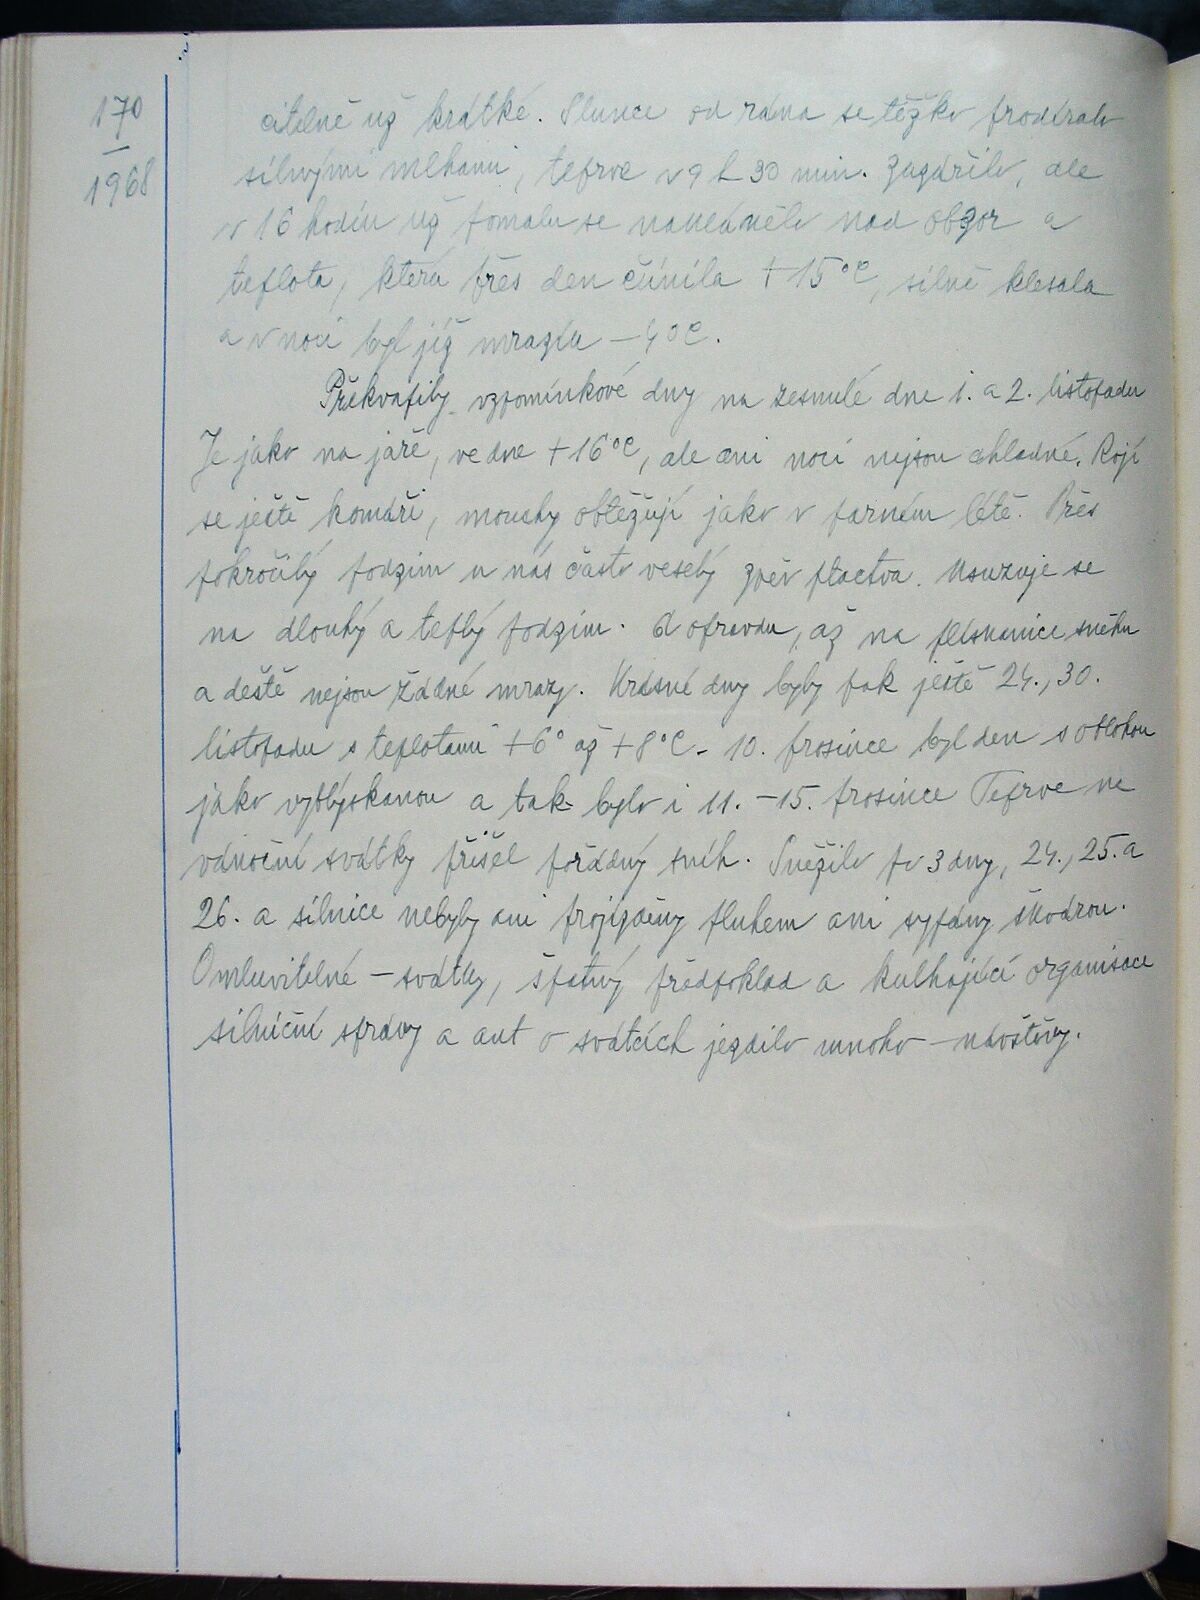 170
1968
citelně už krátké. Slunce od rána se těžko prodíralo
silnými mlhami, teprve v 9 h 30 min. zazářilo, ale
v 16 hodin už pomalu se naklánělo nad obzor a
teplota, která přes den činila +15°C, silně klesala
a v noci byl již mrazík -4°C.
Překvapily vzpomínkové dny na zesnulé dne 1. a 2. listopadu
Je jako na jaře, ve dne +16°C, ale ani noci nejsou chladné. Rojí
se ještě komáři, mouchy obtěžují jako v parném létě. Přes
pokročilý podzim u nás často veselý zpěv ptactva. Usuzuje se
na dlouhý a teplý podzim. A opravdu, až na plískanice sněhu
a deště nejsou žádné mrazy. Krásné dny byly pak ještě 24., 30.
listopadu s teplotami +6° až +8°C. 10. prosince byl den s oblohou
jako vyblýskanou a tak bylo i 11. - 15. prosince Teprve na
vánoční svátky přišel pořádný sníh. Sněžilo po 3 dny, 24., 25. a
26. a silnice nebyly ani projížděny pluhem ani sypány škvárou.
Omluvitelné - svátky, špatný předpoklad a kulhající organisace
silniční správy a aut o svátcích jezdilo mnoho - návštěvy.